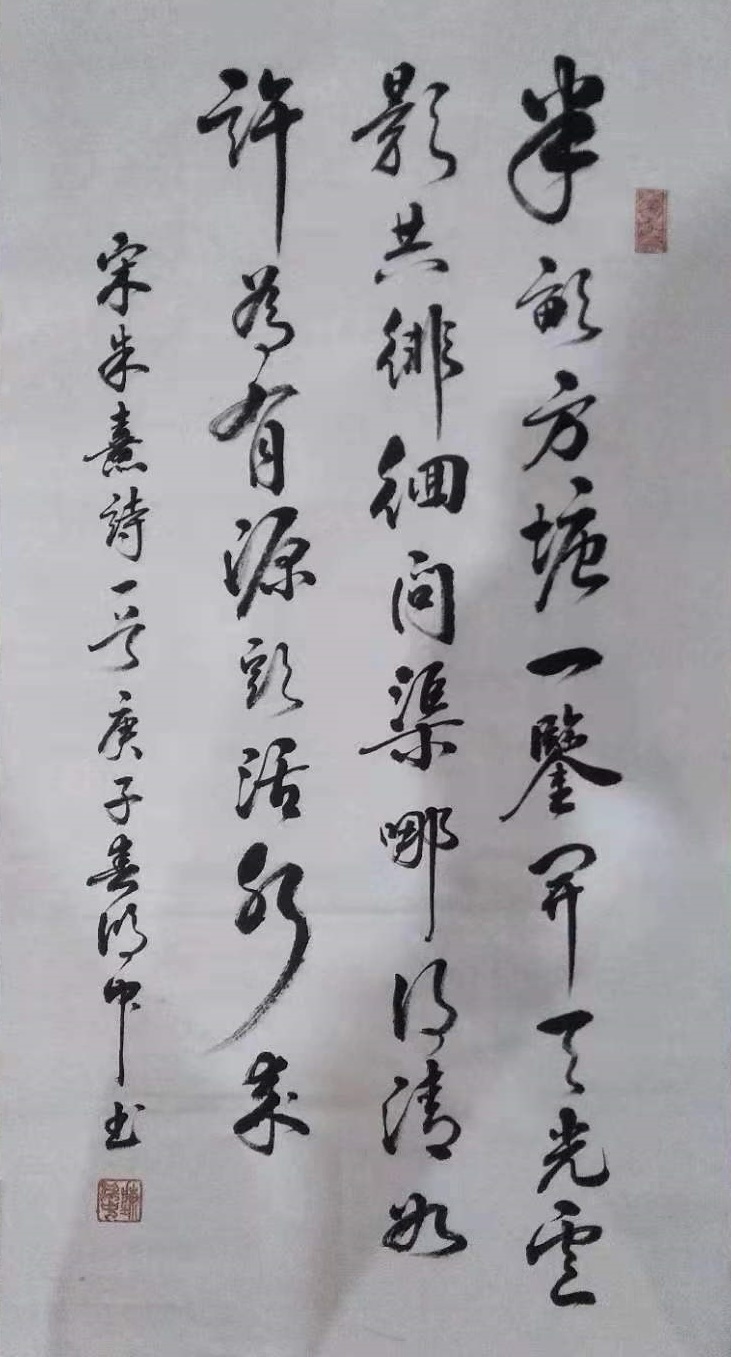 半畝方塘一鑒開天光雲
影共徘徊问渠哪得清如
許為有源頭活水來
宋朱熹詩一首庚子春中书